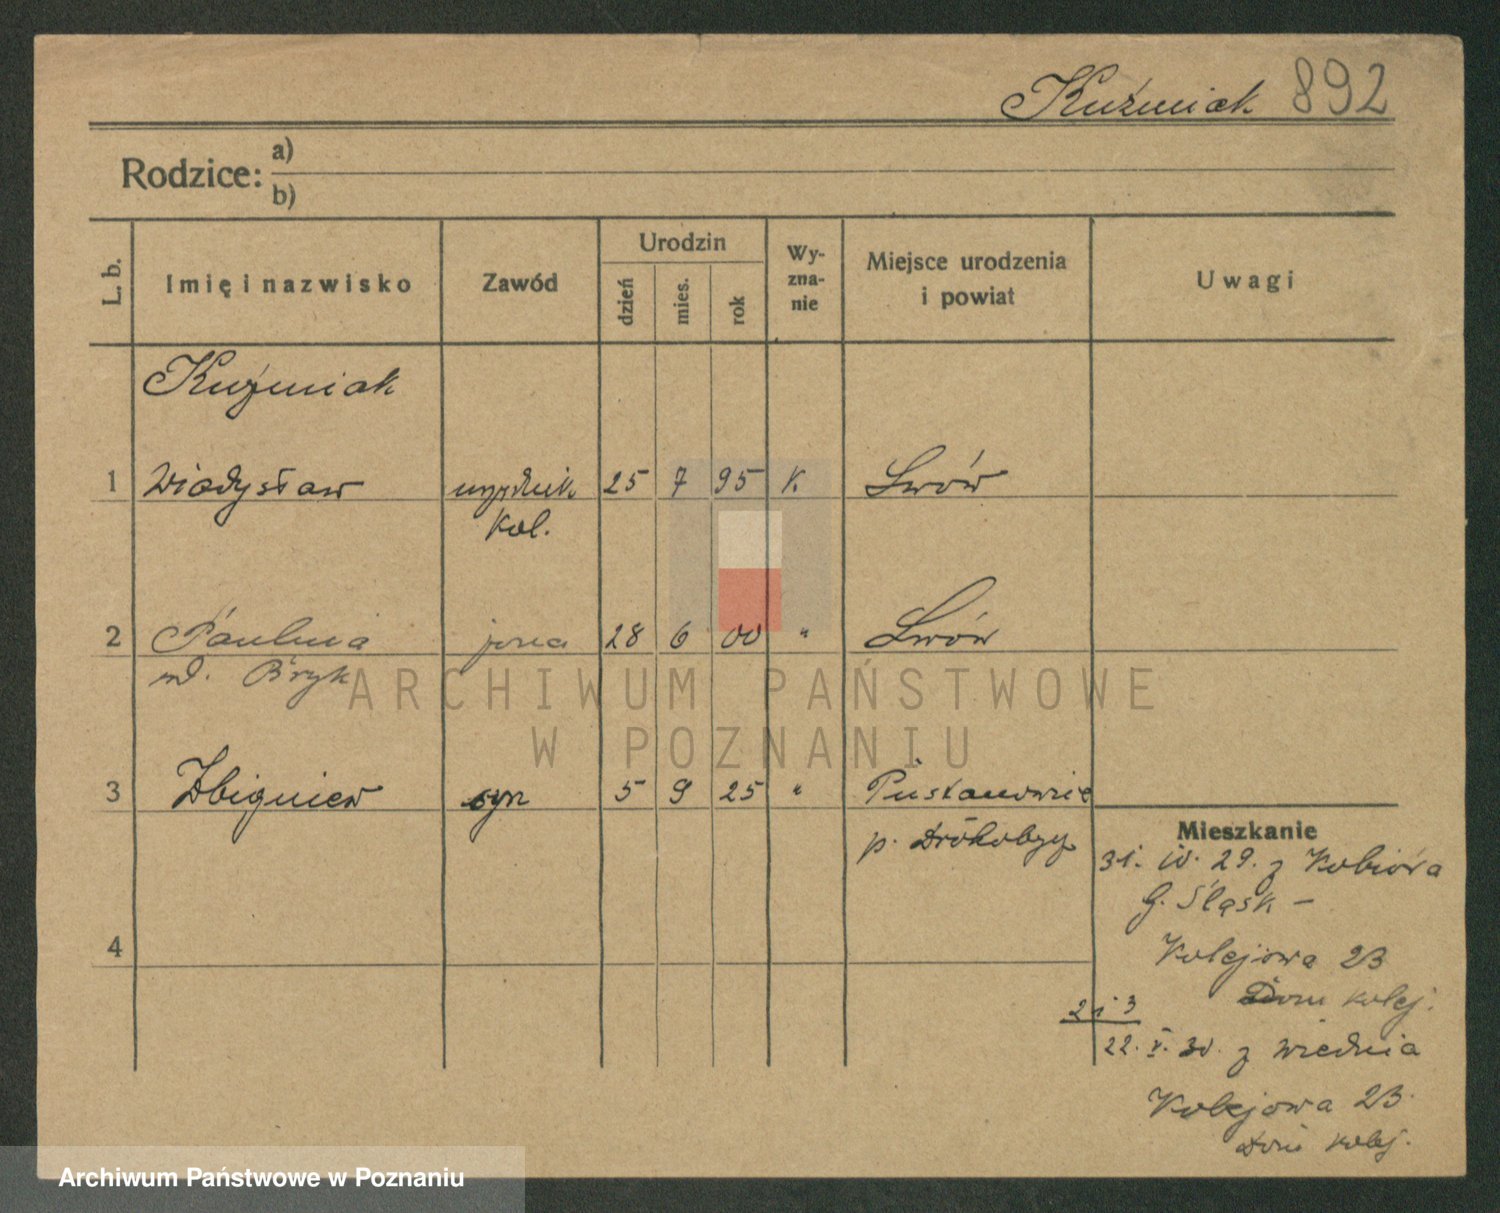 Kuźmiak 892
Rodzice: a)
b)
L. b. Imię i nazwisko Zawód Urodzin dzień mies. rok Wy-zna-nie Miejsce urodzenia i powiat Uwagi
Kuźmiak
1 Władysław urzędnik 25 7 95 K. Lwów
kol.
2 Paulina żona 28 6 00 " Lwów
Bryk
ARCHIWUM PAŃSTWOWE
W POZNANIU
3 Zbigniew syn 5 9 25 "
p. Drohobycz
Mieszkanie
31. 29. z Kobióra
G. Śląsk –
4
Kolejowa 23
Dom kolej.
2 i 3
22. V. 30. z Wiednia
Kolejowa 23.
Dom kolej.
Archiwum Państwowe w Poznaniu